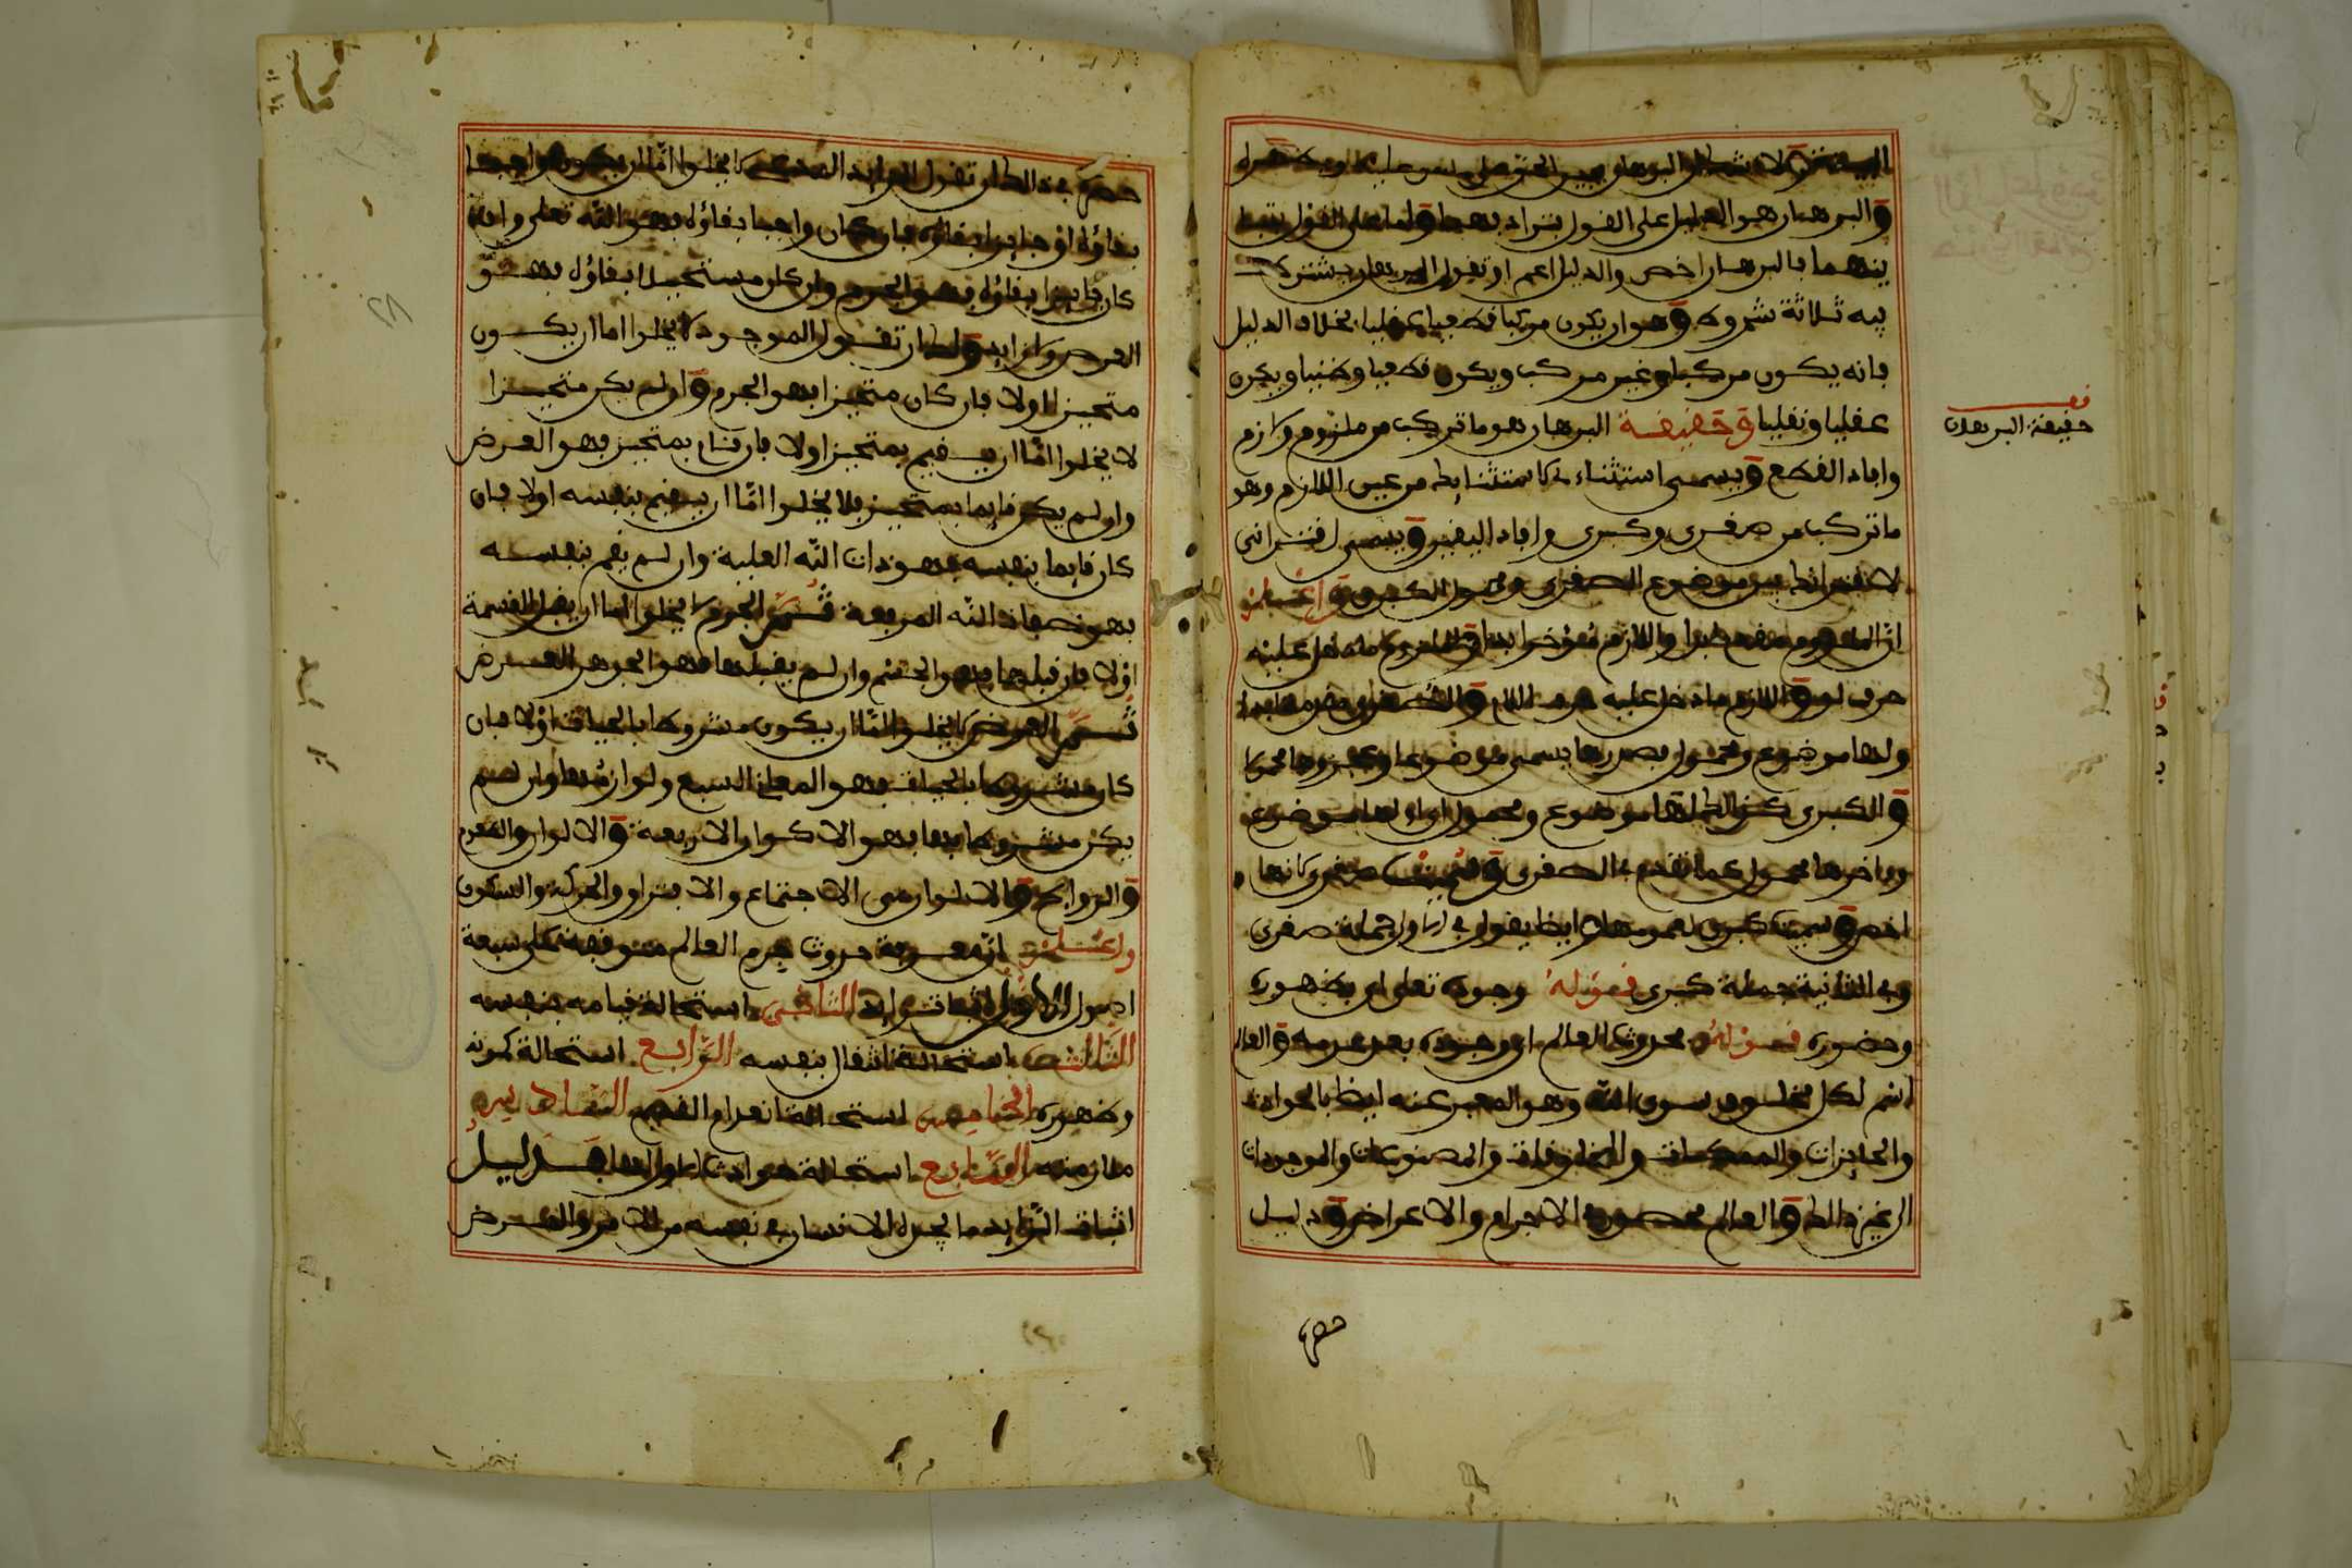 والبرهان هو الدليل على القول بترادفهما واما على القول بتباينهما
ينهما فالبرهان اخص والدليل اعم او تقول البرهان يشترط
فيه ثلاثة شروط وهو ان يكون مركبا قطعيا عقليا بخلاف الدليل
فانه يكون مركبا وغير مركب ويكون قطعيا وظنيا ويكون
عقليا ونقليا وحقيقة البرهان هو ما تركب من ملزوم ولازم
وافاد القطع ويسمى استثناء من عين اللازم وهو
ما تركب من صغرى وكبرى وافاد اليقين ويسمى اقتراني
موضوع الصغرى ومحمول الكبرى واعلم
ان الملزوم مقدم والازم مؤخر ابدا عليه
حرف لو واللازم ما دخل عليه حرف اللام والصغرى
ولها موضوع ومحمول فصدرها يسمى موضوعا وعجزها محمولا
والكبرى كذالك لها موضوع ومحمول اولها موضوع
وءاخرها محمول كما تقدم في الصغرى وسميت صغرى لانها
اخص وسميت كبرى لعمومها ايضا يقول في الاولى جملة صغرى
وفي الثانية جملة كبرى فقوله وجوده تعلى اي ظهوره
وحضوره فقوله محدوث العالم اي وجوده بعد عدمه والعالم
اسم لكل مخلوق سوى الله وهو المعبر عنه ايضا بالحوادث
والجايزات والممكنات والمخلوقات والمصنوعات والموجودات
الى غير ذالك والعالم محصور في الاجرام والاعراض ودليل
حصره
قف
حقيقة البرهان
حصره في ذالك ان تقول لا يخلوا اما ان يكون واجبا
بقاؤه او جايزا بقاؤه فان كان واجبا بقاؤه فهو الله تعلى وان
كان جايزا بقاؤه فهو الجرم وان كان مستحيلا بقاؤه فهو
العرض وان تقول الموجود لا يخلوا اما ان يكون
متحيزا اولا فان كان متحيزا فهو الجرم وان لم يكن متحيزا
لا يخلوا اما ان يقيم بمتحيز اولا فان قام بمتحيز فهو العرض
وان لم يكن قايما بمتحيز فلا يخلوا اما ان يقيم بنفسه اولا فان
كان قايما بنفسه فهو ذات الله العلية وان لم يقم بنفسه
فهو صفات الله المرفعة ثم الجرم لا يخلوا اما ان يقبل القسمة
او لا فان قبلها فهو الجسم وان لم يقبلها فهو الجوهر الفرد
ثم العرض لا يخلوا اما ان يكون مشروطا بالحياة اولا فان
كان مشروطا بالحياة فهو المعاني السبع ولوازمها وان لم
يكن مشروطا بها فهو الاكوان الاربعة والالوان والطعوم
والروايح والاكوان هي الاجتماع والافتراق والحركة والسكون
واعلم ان معرفة حدوث جرم العالم متوقفة على سبعة
اصول الاول اثبات زايد الثاني استحالة قيامه بنفسه
الثالث استحالة انتقال بنفسه الرابع استحالة كمونه
وظهوره الخامس استحالة انعدام القديم السادس
ملازمته السابع استحالة حوادث لا اول لها فدليل
اثبات الزايد ما يجده الانسان في نفسه من الامر والعرض